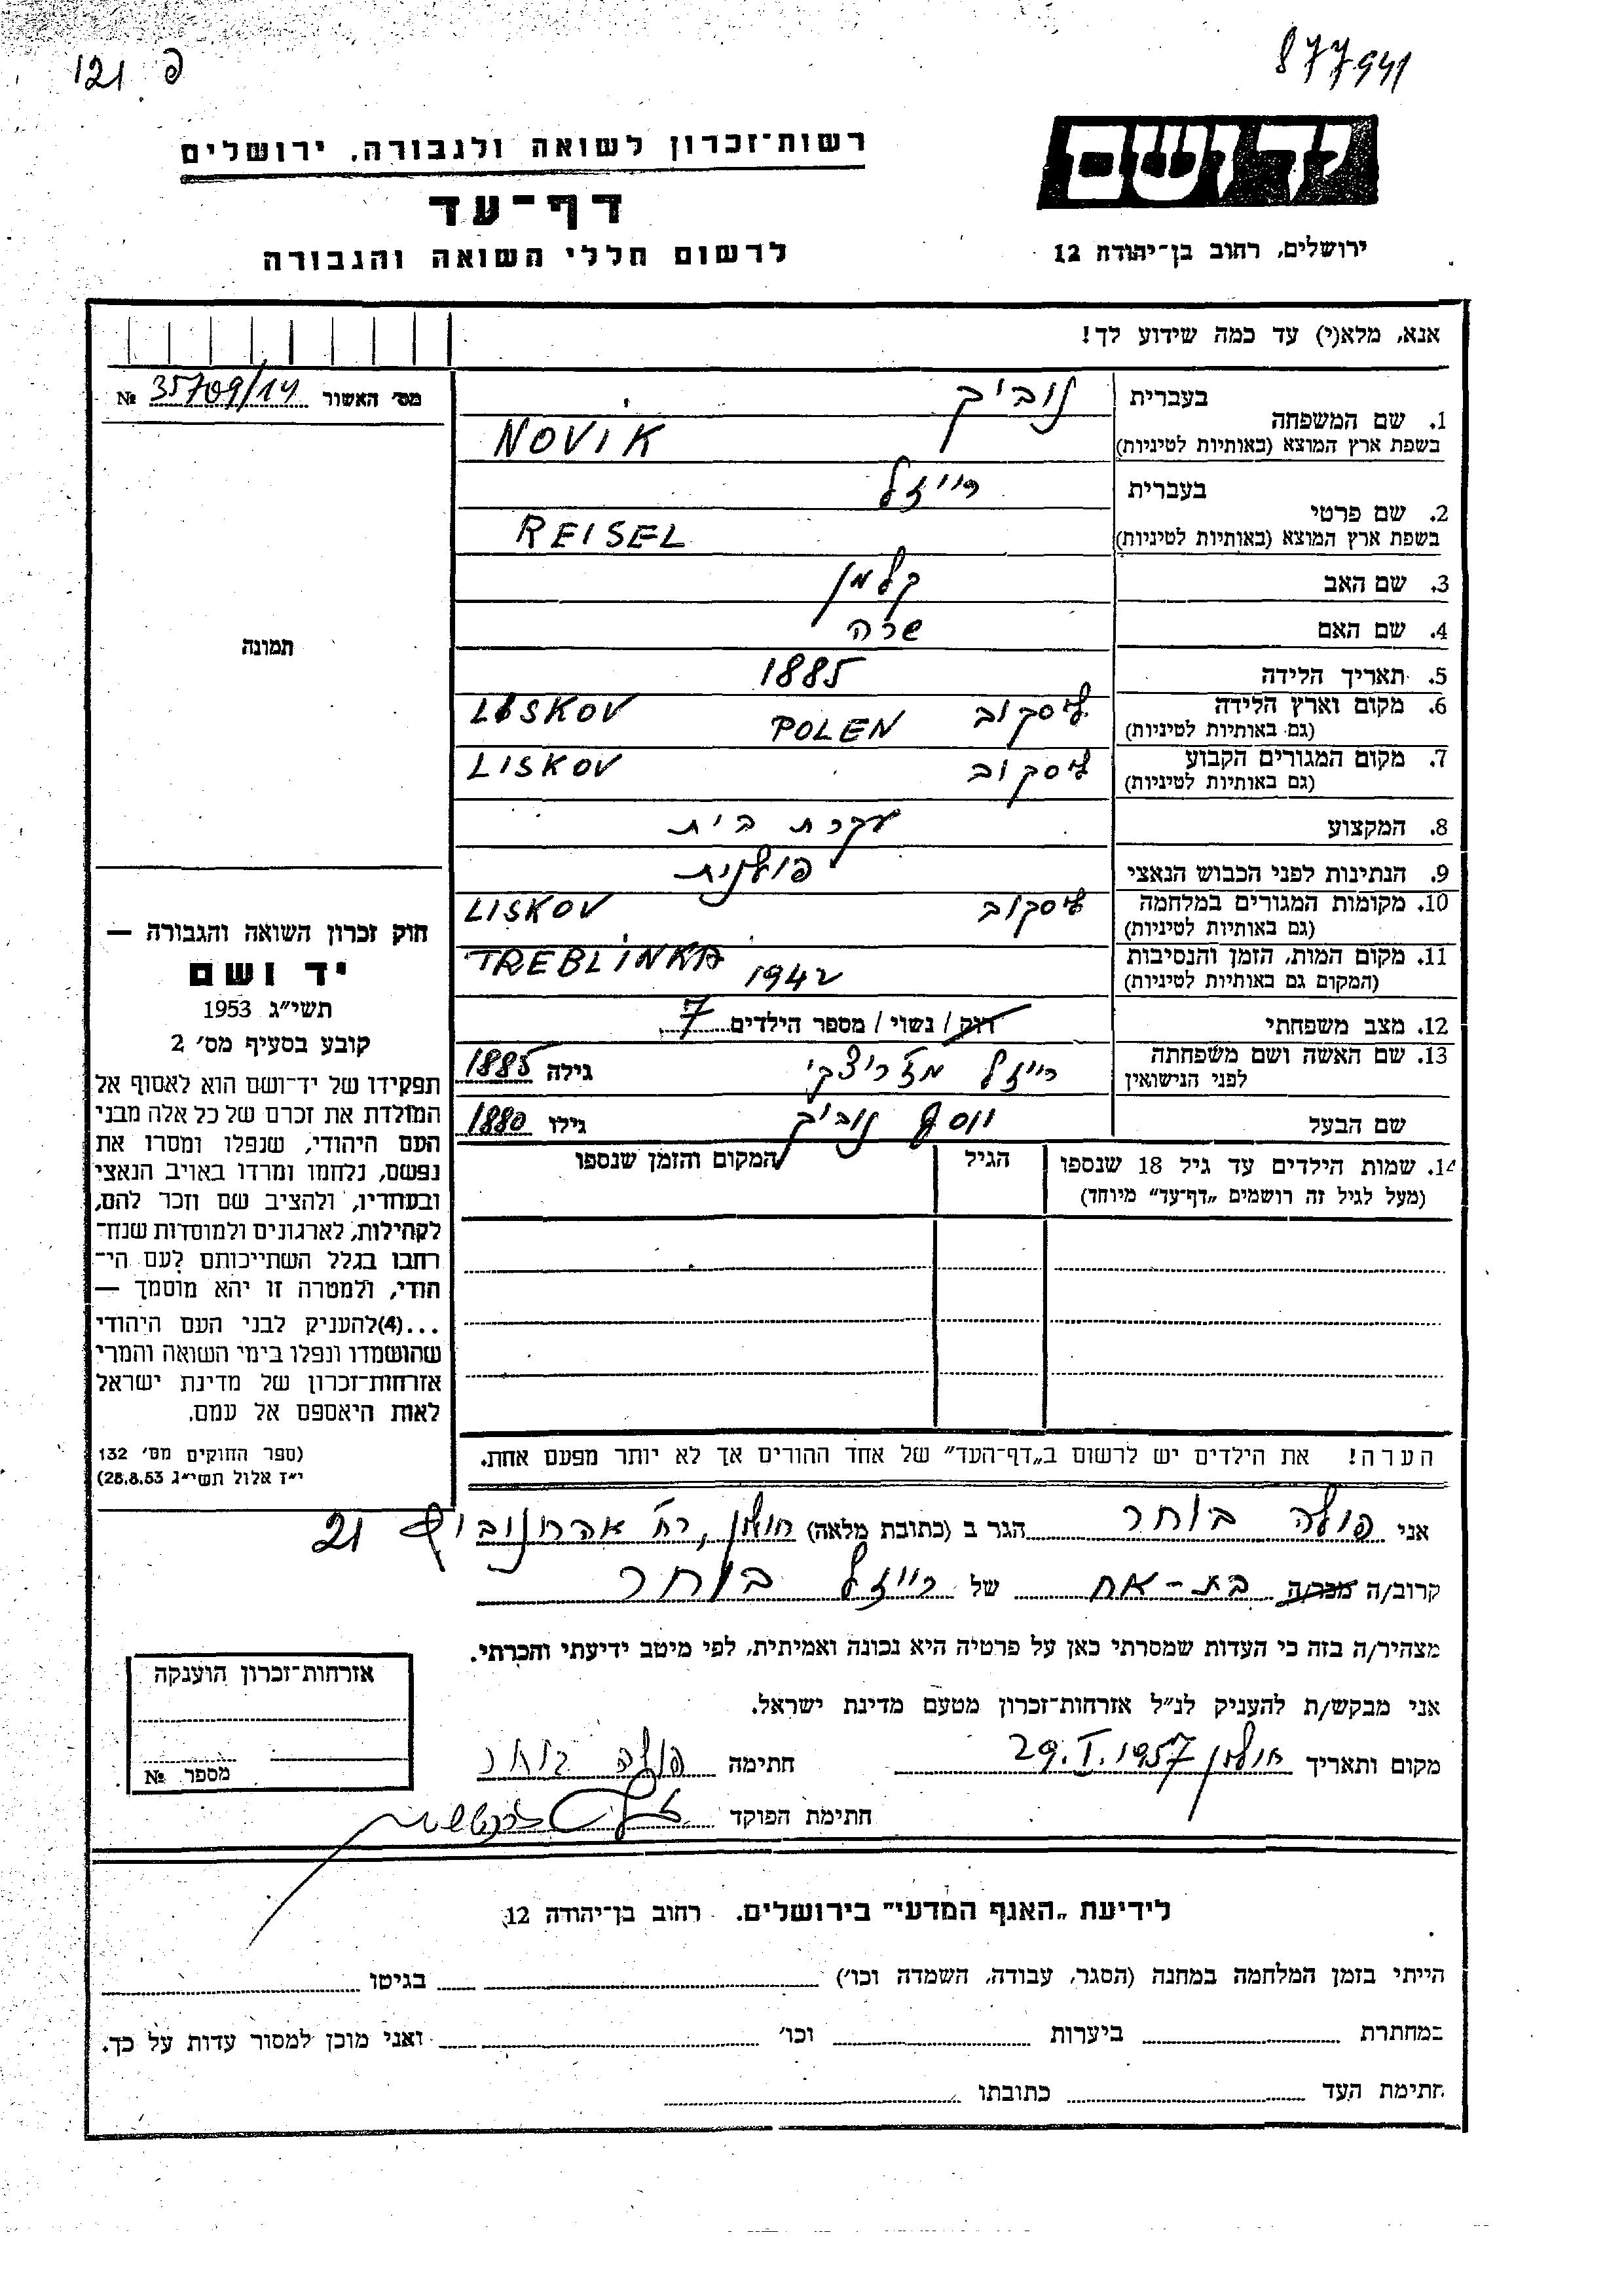 פ 121
877941
יד ושם
ירושלים, רחוב בן־יהודה 12
רשות־זכרון לשואה ולגבורה, ירושלים
דף־עד
לרשום חללי השואה והגבורה
אנא, מלא(י) עד כמה שידוע לך!
מס׳ האשור 35709/14 №
1. שם המשפחה
בעברית נוביק
בשפת ארץ המוצא (באותיות לטיניות) NOVIK
2. שם פרטי
בעברית רייזל
בשפת ארץ המוצא (באותיות לטיניות) REISEL
3. שם האב קלמן
4. שם האם שרה
5. תאריך הלידה 1885
6. מקום וארץ הלידה ליסקוב POLEN LISKOV
(גם באותיות לטיניות)
7. מקום המגורים הקבוע ליסקוב LISKOV
(גם באותיות לטיניות)
8. המקצוע עקרת בית
9. הנתינות לפני הכבוש הנאצי פולנית
10. מקומות המגורים במלחמה ליסקוב LISKOV
(גם באותיות לטיניות)
11. מקום המות, הזמן והנסיבות TREBLINKA 1942
(המקום גם באותיות לטיניות)
12. מצב משפחתי רוק / נשוי / מספר הילדים 7
13. שם האשה ושם משפחתה רייזל מזריצקי גילה 1885
לפני הנישואין
שם הבעל יוסף נוביק גילו 1880
14. שמות הילדים עד גיל 18 שנספו הגיל המקום והזמן שנספו
(מעל לגיל זה רושמים „דף־עד״ מיוחד)
הערה! את הילדים יש לרשום ב„דף־העד״ של אחד ההורים אך לא יותר מפעם אחת.
תמונה
חוק זכרון השואה והגבורה —
יד ושם
תשי״ג 1953
קובע בסעיף מס׳ 2
תפקידו של יד־ושם הוא לאסוף אל
המולדת את זכרם של כל אלה מבני
העם היהודי, שנפלו ומסרו את
נפשם, נלחמו ומרדו באויב הנאצי
ובעוזריו, ולהציב שם וזכר להם,
לקהילות, לארגונים ולמוסדות שנח־
רחבו בגלל השתייכותם לעם הי־
הודי, ולמטרה זו יהא מוסמך —
...(4)להעניק לבני העם היהודי
שהושמדו ונפלו בימי השואה והמרי
אזרחות־זכרון של מדינת ישראל
לאות היאספם אל עמם.
(ספר החוקים מס׳ 132
י״ז אלול תשי״ג 28.8.53)
אני פולה בוחר הגר ב (כתובת מלאה) חולון, רח׳ אהרונוביץ 21
קרוב/ה מכר/ה בת-אח של רייזל בוחר
מצהיר/ה בזה כי העדות שמסרתי כאן על פרטיה היא נכונה ואמיתית, לפי מיטב ידיעתי והכרתי.
אני מבקש/ת להעניק לנ״ל אזרחות־זכרון מטעם מדינת ישראל.
מקום ותאריך חולון 29.I.1957 חתימה פולה בוחר
חתימת הפוקד
אזרחות־זכרון הוענקה
מספר №
לידיעת „האגף המדעי״ בירושלים. רחוב בן־יהודה 12
הייתי בזמן המלחמה במחנה (הסגר, עבודה, השמדה וכו׳) בגיטו
במחתרת ביערות וכו׳ ואני מוכן למסור עדות על כך.
חתימת העד כתובתו